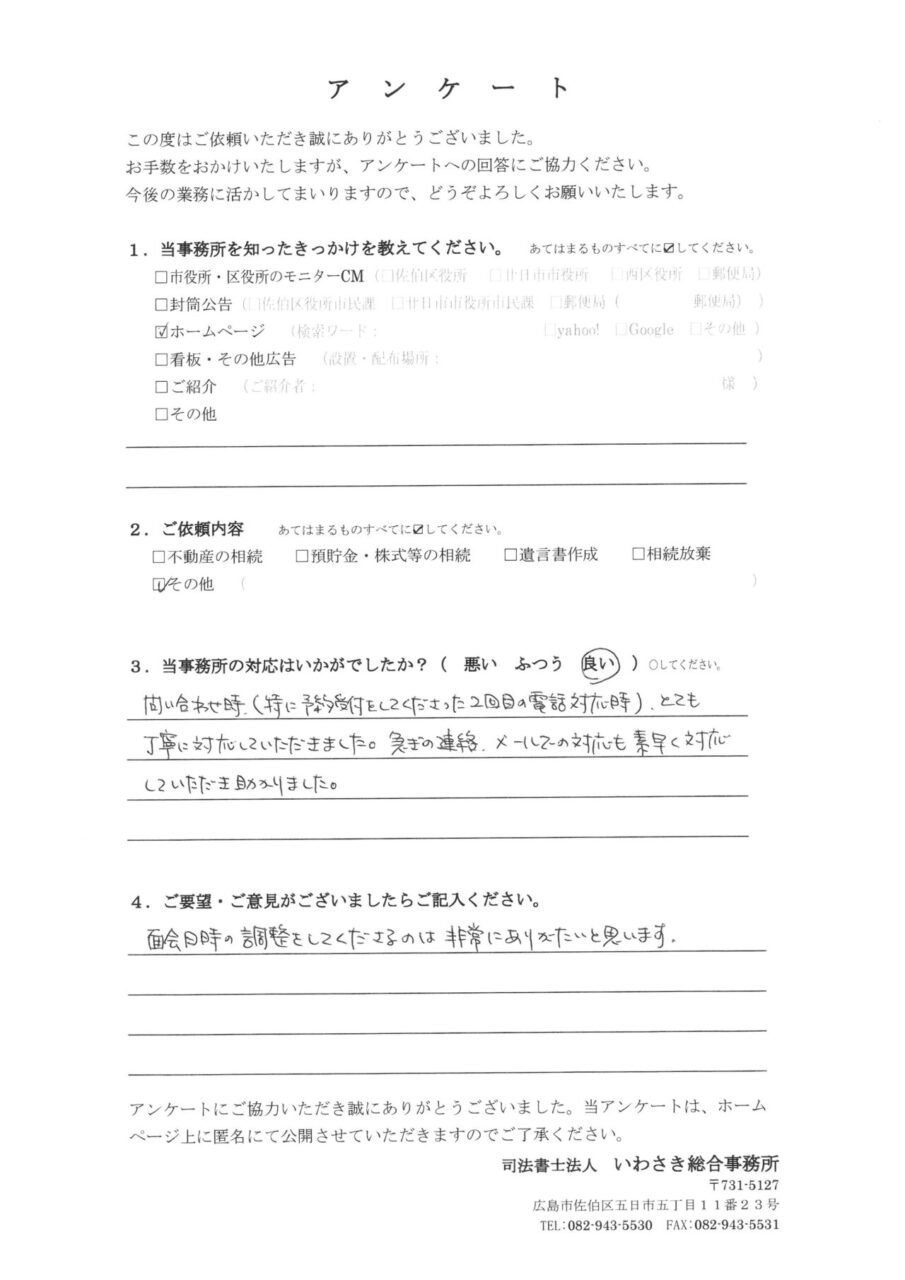 アンケート
この度はご依頼いただき誠にありがとうございました。
お手数をおかけいたしますが、アンケートへの回答にご協力ください。
今後の業務に活かしてまいりますので、どうぞよろしくお願いいたします。
1．当事務所を知ったきっかけを教えてください。 あてはまるものすべてに☑してください。
□市役所・区役所のモニターCM（□佐伯区役所 □廿日市市役所 □西区役所 □郵便局）
□封筒公告（□佐伯区役所市民課 □廿日市市役所市民課 □郵便局（ 郵便局））
☑ホームページ （検索ワード： □yahoo! □Google □その他）
□看板・その他広告 （設置・配布場所： ）
□ご紹介 （ご紹介者： 様 ）
□その他
2．ご依頼内容 あてはまるものすべてに☑してください。
□不動産の相続 □預貯金・株式等の相続 □遺言書作成 □相続放棄
☑その他 （ ）
3．当事務所の対応はいかがでしたか？（ 悪い ふつう 良い ）○してください。
問い合わせ時、（特に予約受付をしてくださった2回目の電話対応時）、とても
丁寧に対応していただきました。急ぎの連絡、メールでの対応も素早く対応
していただき助かりました。
4．ご要望・ご意見がございましたらご記入ください。
面会日時の調整をしてくださるのは非常にありがたいと思います。
アンケートにご協力いただき誠にありがとうございました。当アンケートは、ホーム
ページ上に匿名にて公開させていただきますのでご了承ください。
司法書士法人 いわさき総合事務所
〒731-5127
広島市佐伯区五日市五丁目11番23号
TEL:082-943-5530 FAX:082-943-5531